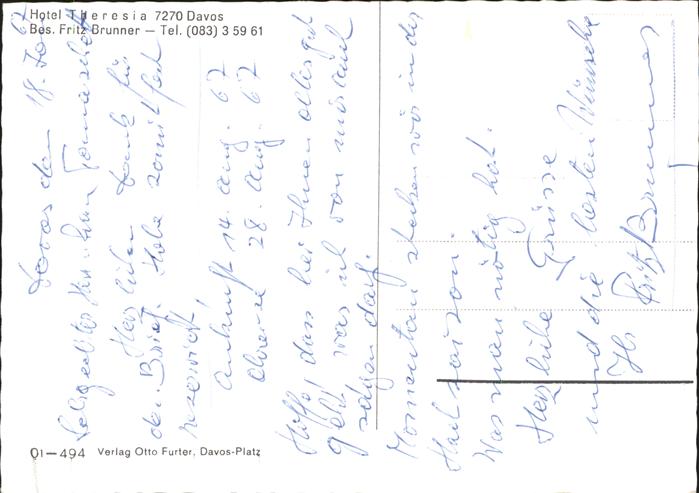 Hotel Theresia 7270 Davos
Bes. Fritz Brunner — Tel. (083) 3 59 61
Davos den 18.
Herzlichen Dank für
den Brief. Habe somit fest
reserviert!
Ankunft 14. Aug. 67
Abreise 28. Aug. 67
Hoffe, dass bei Ihnen alles gut
geht was ich von mir auch
sagen darf.
Momentan stecken wir in der
Was man nötig hat.
Herzliche Grüsse
und die besten Wünsche
Ihr Fritz Brunner
01—494 Verlag Otto Furter, Davos-Platz